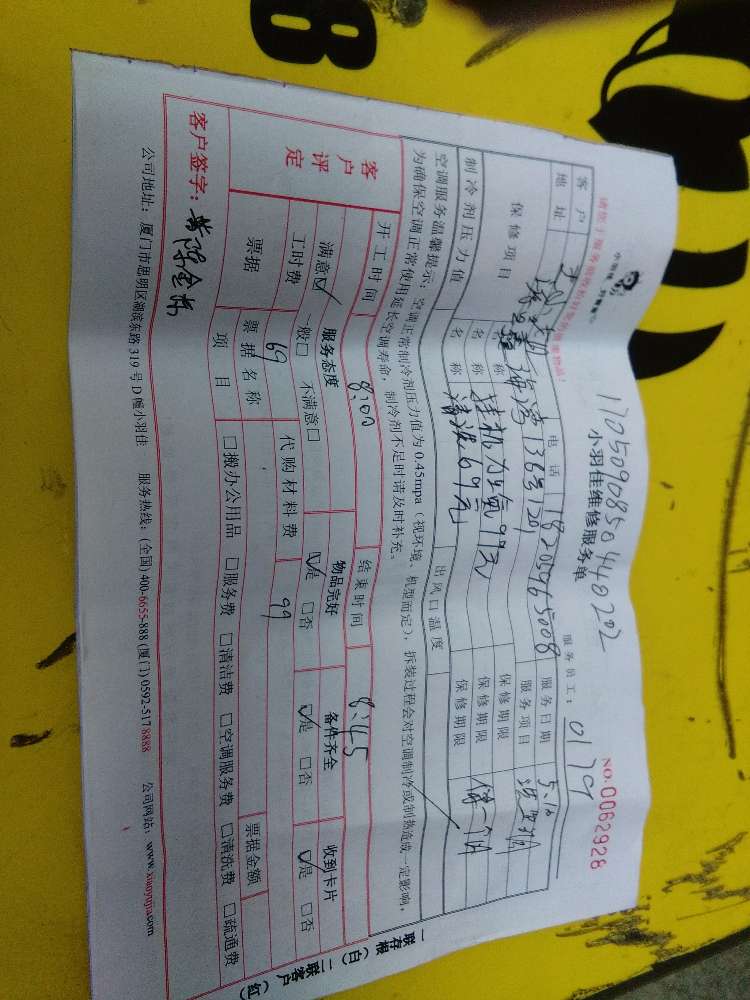 8
17050908504448202
小羽佳维修服务单
服务员工：
NO.0062928
客户
电话 18205965008
服务日期 5.10
地址 海湾
服务项目
保修项目
名称 挂机加氟99元
保修期限 保一个月
名称 清洗69元
保修期限
制冷剂压力值
出风口温度
空调服务温馨提示：空调正常制冷剂压力值为0.45mpa（视环境、机型而定），拆装过程会对空调制冷或制热造成一定影响，
为确保空调正常使用延长空调寿命，制冷剂不足时请及时补充。
开工时间 8:00 结束时间 8:45
客户评定
服务态度 物品完好 备件齐全 收到卡片
满意☑ 一般□ 不满意□ ☑是 □否 ☑是 □否 ☑是 □否
工时费 69 代购材料费 99
票据 票据名称 票据金额
项目 □搬办公用品 □服务费 □清洁费 □空调服务费 □清洗费 □疏通费
客户签字：
公司地址：厦门市思明区湖滨东路319号D幢小羽佳 服务热线：(全国)400-6655-888 (厦门)0592-517 8888 公司网站：www.xiaoyujia.com
一联存根（白）二联客户（红）